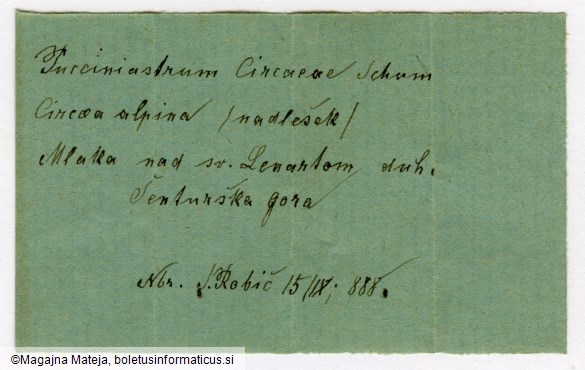 Pucciniastrum Circaeae Schum
Circæa alpina /nadlešek/
Mlaka nad sv. Lenartom duh.
Šenturška gora
Nbr. S. Robič 15/IX; 888.
©Magajna Mateja, boletusinformaticus.si